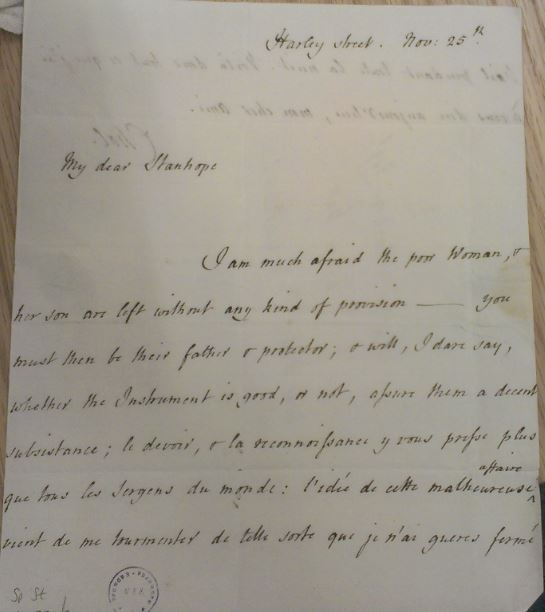 Harley street. Nov: 25th.
My dear Stanhope
I am much afraid the poor Woman, &
her son are left without any kind of provision — you
must then be their father & protector; & will, I dare say,
whether the Instrument is good, or not, assure them a decent
subsistance; le devoir, & la reconnoissance y vous presse plus
affaire
que tous les sergens du monde: l'idée de cette malheureuse ^
vient de me tourmenter de telle sorte que je n'ai gueres fermé
Sp St